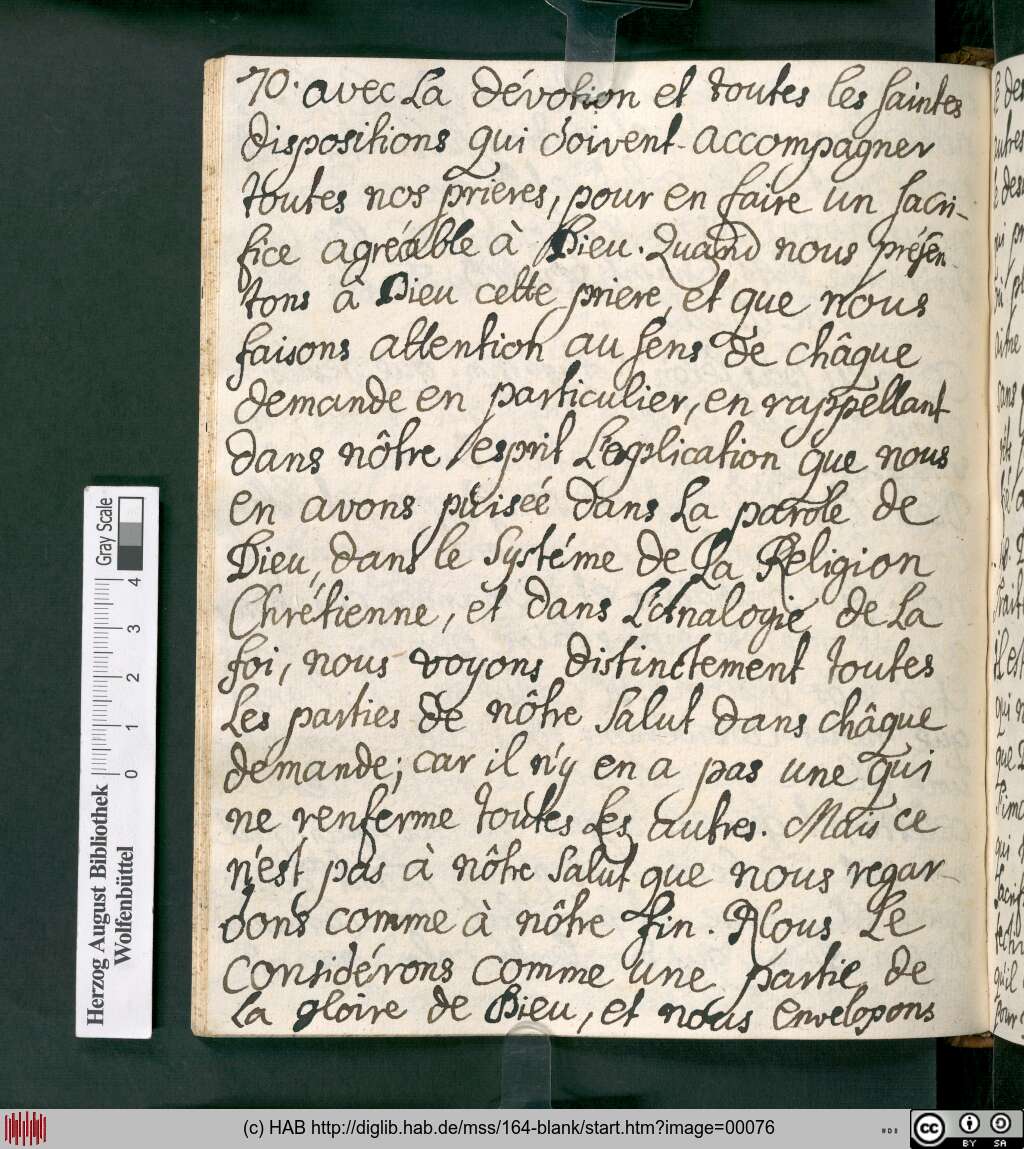 70. avec La dévotion et toutes les saintes
dispositions qui doivent accompagner
toutes nos prieres, pour en faire un sacri-
fice agréable à Dieu. Quand nous présen
tons à Dieu cette priere, et que nous
faisons attention au sens de châque
demande en particulier, en rappellant
dans nôtre esprit L'explication que nous
en avons puiseé dans La parole de
Dieu, dans le Systéme de La Religion
Chrétienne, et dans L'Analogie de La
foi, nous voyons distinctement toutes
Les parties de nôtre Salut dans châque
demande; car il n'y en a pas une qui
ne renferme toutes Les autres. Mais ce
n'est pas à nôtre Salut que nous regar-
dons comme à nôtre fin. Nous Le
Considérons comme une partie de
La gloire de Dieu, et nous envelopons
Gray Scale
0 1 2 3 4
Herzog August Bibliothek
Wolfenbüttel
(c) HAB http://diglib.hab.de/mss/164-blank/start.htm?image=00076
cc BY SA